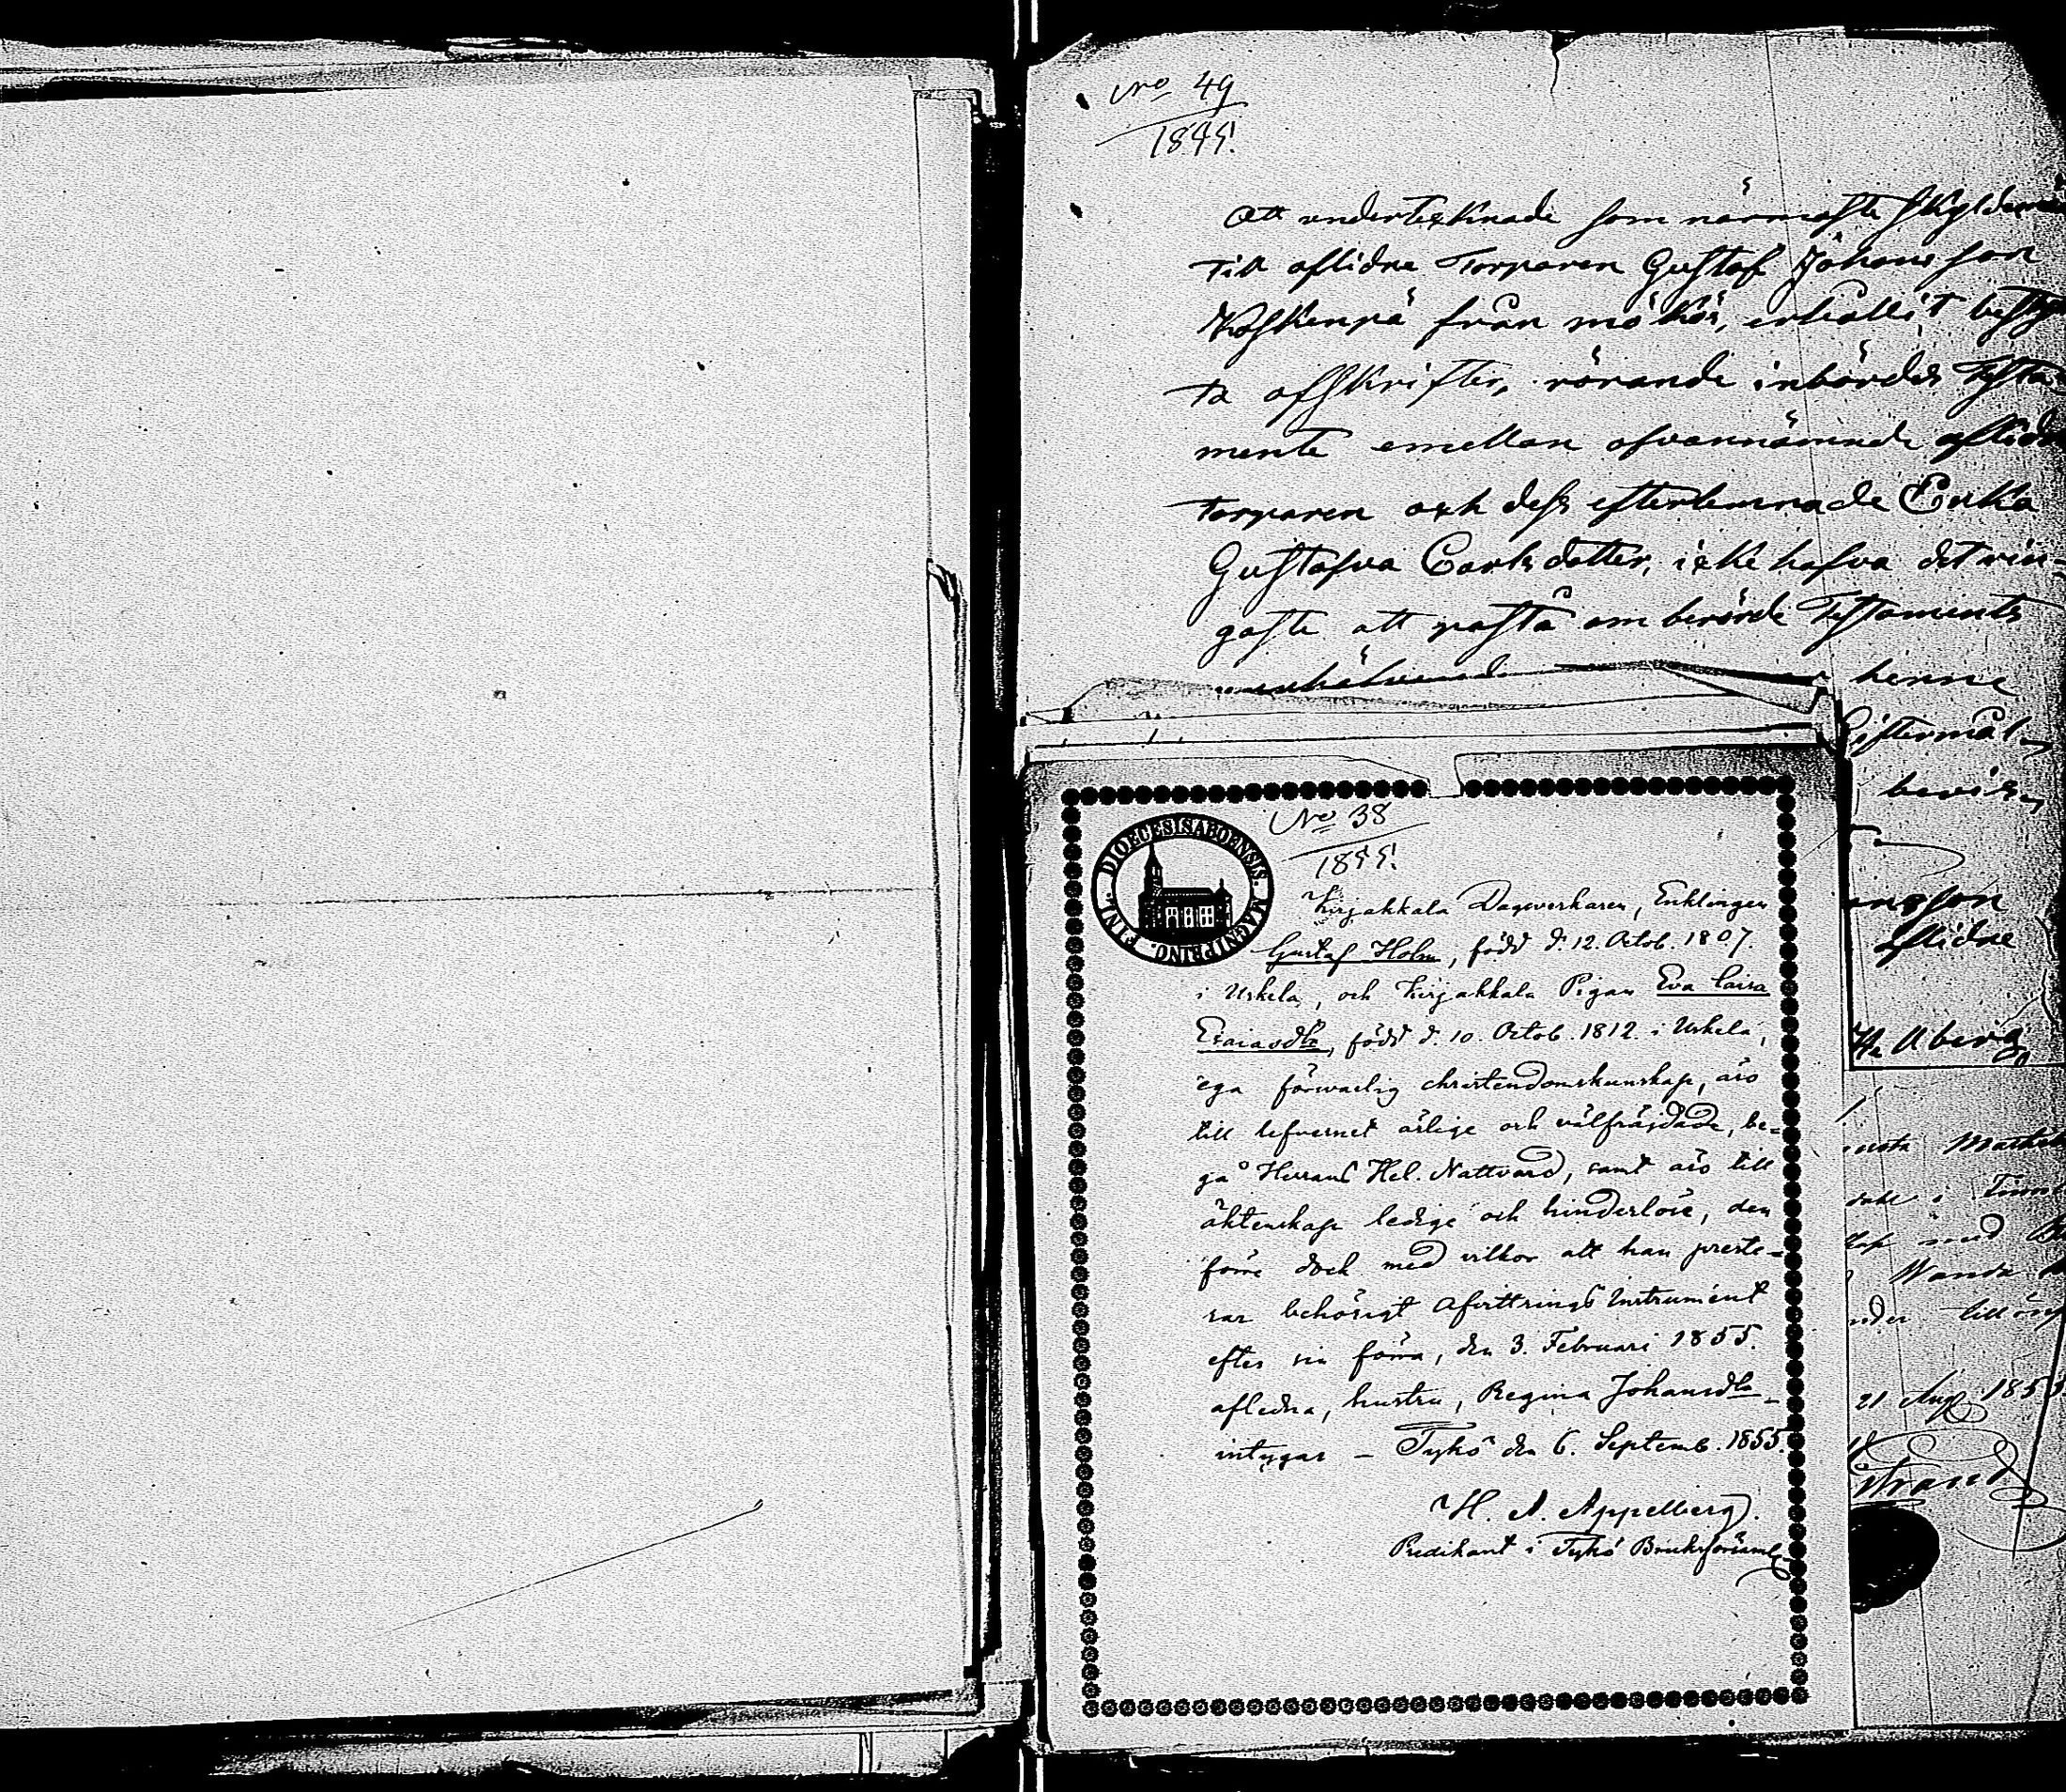 No 49
1855.
Att undertecknade som närmaste skyldemän
till aflidne Torparen Gustaf Johansson
Koskenpä från mökö, erhållit bestyr
ta afskrifter, rörande inbördes Testa-
mente emellan ofvannämnde aflidne
torparen och dess efterlemnade Enka
Gustafva Carlsdotter, icke hafva det rin-
gaste att påstå om berörde Testaments
henne
Giftermål
bevis
ansson
aflidne
No 38
1855.
DIOECESIS ABOENSIS. MAGNI PRINC. FINL.
Kirjakkala Dagsverkaren, Enklingen
Gustaf Holm, född d. 12. Octob. 1807.
i Uskela, och Kirjakkala Pigan Eva Caisa
Esaiasdtr, född d. 10. Octob. 1812. i Uskela,
ega försvarlig christendomskunskap, äro
till lefvernet ärlige och välfräjdade, be-
gå Herrans Hel. Nattvard, samt äro till
äktenskap ledige och hinderlöse, den
förre dock med vilkor att han preste-
rar behörigt Afvittrings Instrument
efter sin förra, den 3. Februari 1855.
afledna, hustru, Regina Johansdtr
intygar – Tykö den 6. Septemb. 1855.
H. A. Appelberg.
Predikant i Tykö Bruksförsaml
i Finnb
med
Wanda
21 Aug 1855
strand